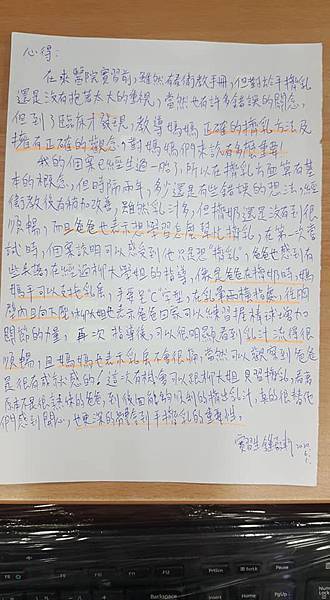 心得:
在來醫院實習前,雖然有看衛教手冊,但對於手擠乳
還是沒有抱著太大的重視,當然也有許多錯誤的觀念,
但到了臨床才發現,教導媽媽正確的擠乳方法及
擁有正確的觀念,對媽媽們來說有多麼重要!
我的個案已經生過一胎了,所以在擠乳方面算有基
本的概念,但時隔兩年,多少還是有些錯誤的想法,經
衛教後有稍加改善,雖然乳汁多,但擠奶還是沒有到很
順暢,而且爸爸也表示想學習怎麼幫忙擠乳,在第一次嘗
試時,個案說明可以感受到他只是捏"乳",爸爸也感到有
些丟臉,在經過柳大學姐的指導,像是爸爸在擠奶時,媽
媽手可以支托乳房,手要呈C字型,在乳暈兩橫指處,往胸
壁內且向下壓,柳大姐也表示爸爸回家可以練習握棒球,增加
關節的力量,再次指導後,可以很明顯看到乳汁流得很
順暢,且媽媽也表示乳房不會很痛,當然可以觀察到爸爸
是很有成就感的!這次有機會可以跟柳大姐見習擠乳,看著
原本不是很熟悉的爸爸,到後面能夠順利的擠出乳汁,真的很替他
們感到開心,也更深的體會到手擠乳的重要性。
實習生
Backspace
Home
PgUp
Insert
Pause